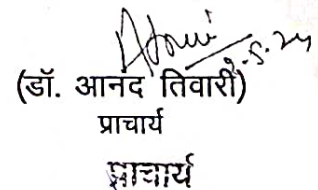 2-5-24
(डॉ. आनंद तिवारी)
प्राचार्य
प्राचार्य